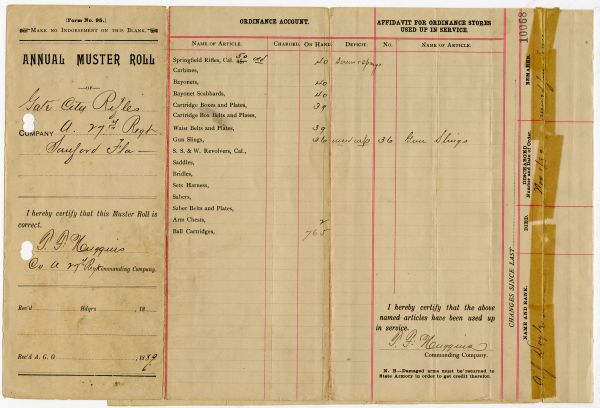 (Form No. 95.)
MAKE NO INDORSEMENT ON THIS BLANK.
ANNUAL MUSTER ROLL
—OF—
Gate City Rifles
COMPANY A.
Sanford Fla —
I hereby certify that this Muster Roll is
correct.
Co A Commanding Company.
Rec'd Hdqrs. ,18
Rec'd A. G. O ,1889
ORDINANCE ACCOUNT.
NAME OF ARTICLE. CHARGED. ON HAND. DEFICIT.
Springfield Rifles, Cal. 50 40
Carbines,
Bayonets, 40
Bayonet Scabbards, 40
Cartridge Boxes and Plates, 39
Cartridge Box Belts and Plates,
Waist Belts and Plates, 39
Gun Slings, 36
S. S. & W. Revolvers, Cal.,
Saddles,
Bridles,
Sets Harness,
Sabers,
Saber Belts and Plates,
Arm Chests, 2
Ball Cartridges, 765
AFFIDAVIT FOR ORDINANCE STORES
USED UP IN SERVICE.
No. NAME OF ARTICLE.
36 Gun Slings
I hereby certify that the above
named articles have been used up
in service.
Commanding Company.
N. B.—Damaged arms must be returned to
State Armory in order to get credit therefor.
10068
CHANGES SINCE LAST
REMARKS.
DISCHARGED
Number and Date of Order.
DIED.
NAME AND RANK.